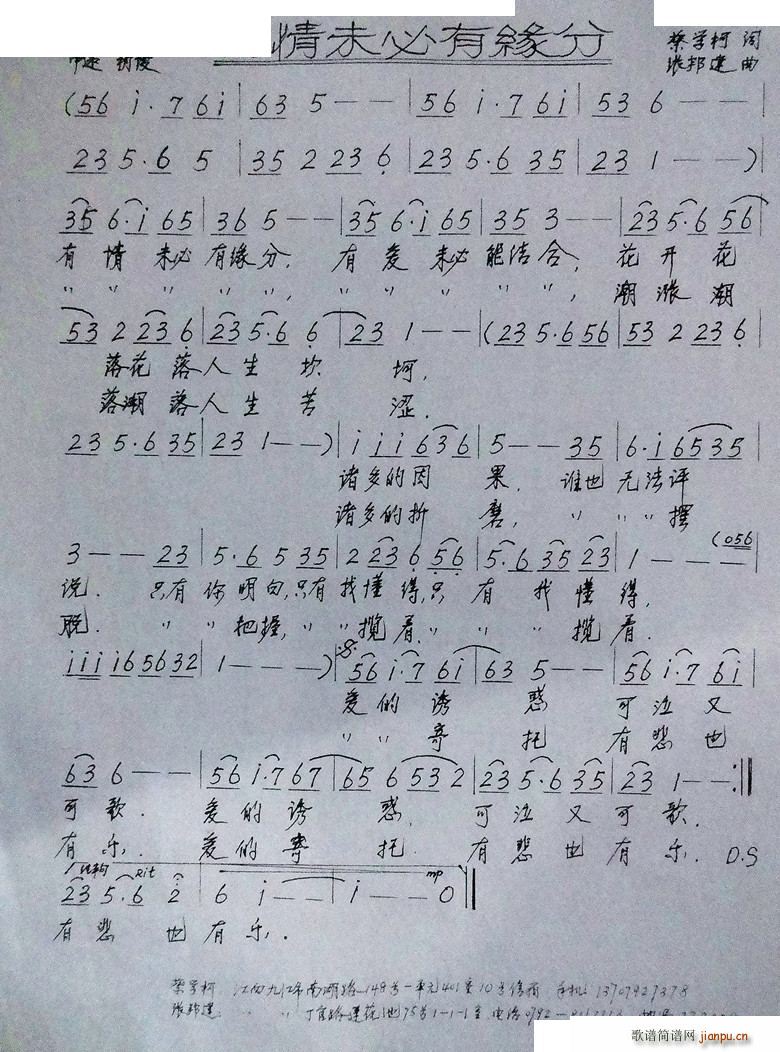 情未必有緣分
蔡学柯 词
张邦建 曲
中速 稍慢
(56 i·7 6i | 63 5 - - | 56 i·7 6i | 53 6 - - |
23 5·6 5 | 35 2 23 6 | 23 5·6 35 | 23 1 - - )
35 6·i 65 | 36 5 - - | 35 6·i 65 | 35 3 - - | 23 5·6 56 |
有情未必有缘分，有爱未必能结合，花开花
〃〃〃〃〃，〃〃〃〃〃，潮涨潮
53 2 23 6 | 23 5·6 6 | 23 1 - - | (23 5·6 56 | 53 2 23 6 |
落花落人生坎坷，
落潮落人生苦涩．
23 5·6 35 | 23 1 - - ) | i i i 6 36 | 5 - - 35 | 6·i 6535 |
诸多的因果，谁也无法评
诸多的折磨，〃〃〃摆
3 - - 23 | 5·6 5 35 | 2 23 6 56 | 5·6 35 23 | 1 - - - (056
说．只有你明白,只有我懂得,只有我懂得，
脱．〃〃把握,〃〃揽着．〃〃〃揽着．
iiii i6 5632 | 1 - - - ) | 56 i·7 6i | 63 5 - - | 56 i·7 6i |
爱的诱惑可泣又
〃〃寄托有悲也
63 6 - - | 56 i·7 67 | 65 6 53 2 | 23 5·6 35 | 23 1 - - :||
可歌．爱的诱惑．可泣又可歌．
有乐．爱的寄托．有悲也有乐．D.S
结构 Rit mp
23 5·6 2 | 6 i - - | i - - 0 ||
有悲也有乐．
蔡学柯 江西九江市南湖路148号一单元401室10号信箱 手机:13707927378
张邦建
歌谱简谱网
jianpu.cn